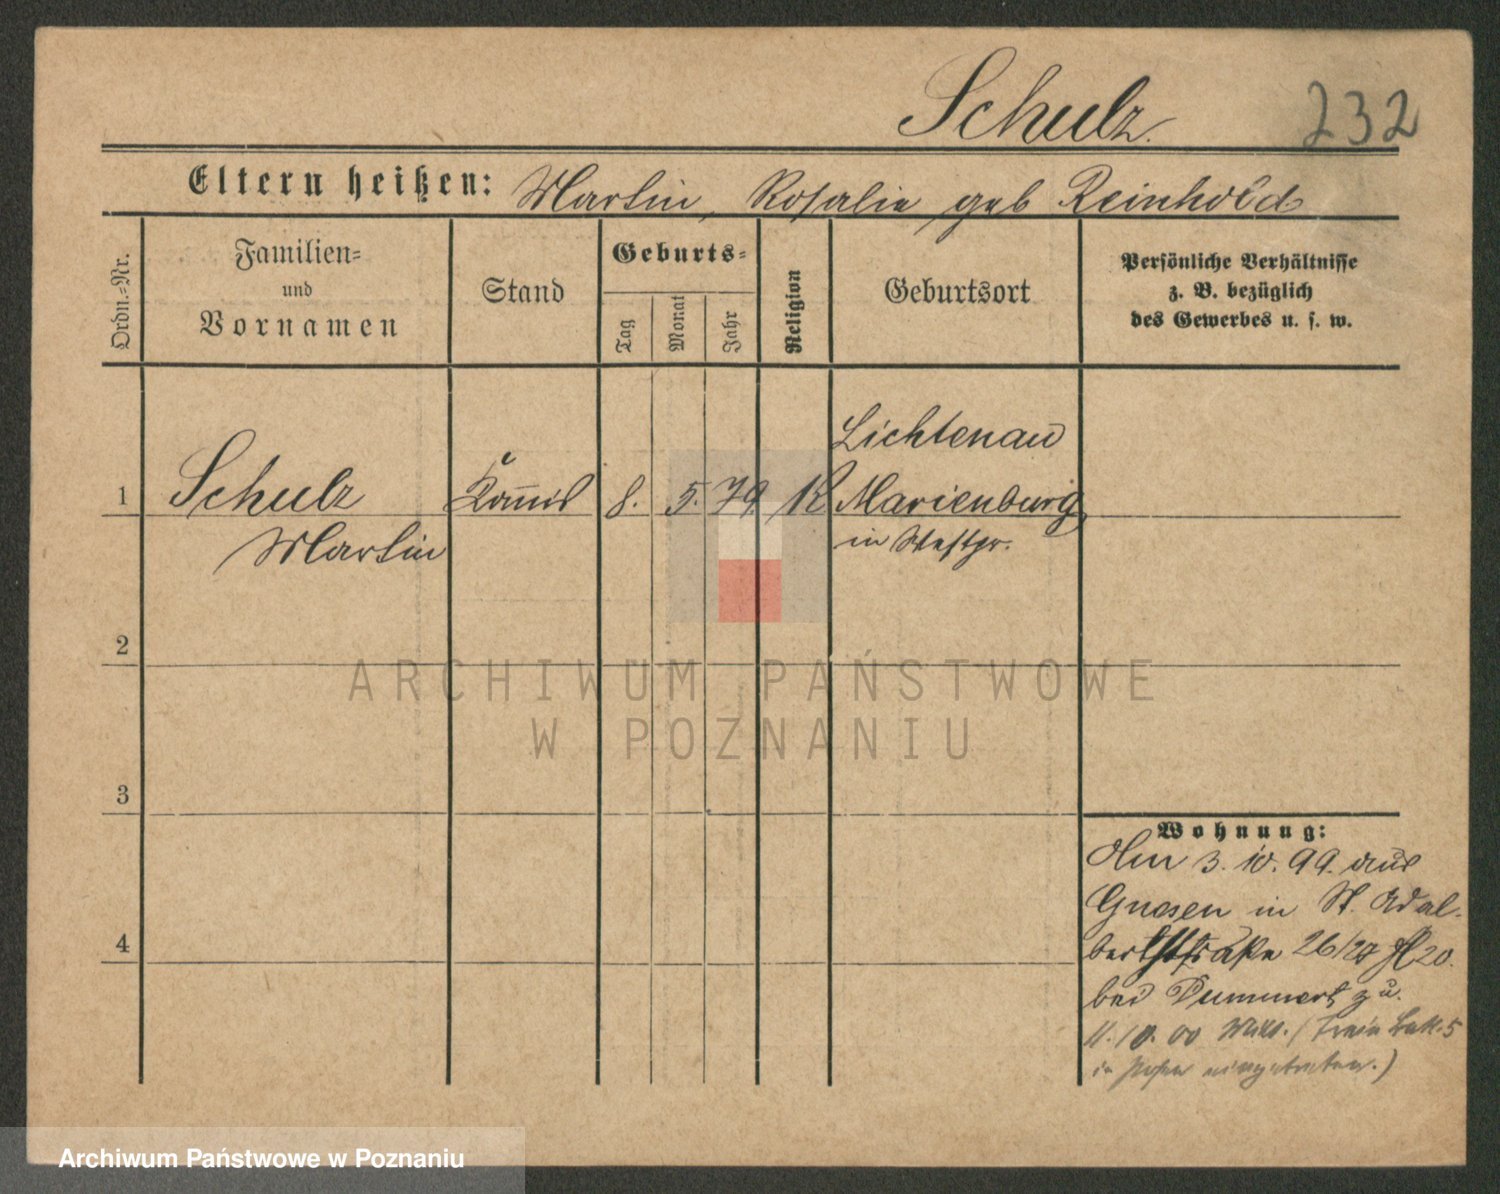 Schulz. 232
Eltern heißen: Martin, Rosalie geb Reinhold
Ordn.-Nr.
Familien-
und
Vornamen
Stand
Geburts-
Tag
Monat
Jahr
Religion
Geburtsort
Persönliche Verhältnisse
z. B. bezüglich
des Gewerbes u. s. w.
1
Schulz
Martin
Kom̅is
8. 5. 79. K
Lichtenau
Marienburg
in Westpr.
2
3
4
Wohnung:
Am 3. 10. 99. aus
Gnesen in St. Adal-
bertstraße 26/27
bei Dummert zu.
11. 10. 00 Milt. (Train Batt. 5
in Posen eingetreten.)
ARCHIWUM PAŃSTWOWE
W POZNANIU
Archiwum Państwowe w Poznaniu